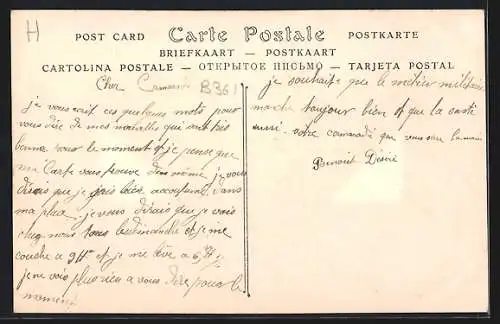 H
POST CARD Carte Postale POSTKARTE
BRIEFKAART — POSTKAART
CARTOLINA POSTALE — ОТКРЫТОЕ ПИСЬМО — TARJETA POSTAL
Cher Camarade B361
je vous ces quelques mots pour
vous dire de mes nouvelles qui sont très
bonne pour le moment et je pense que
ma Carte vous trouve de même je vous
dirais que je suis bien accoutumé dans
ma place. je vous dirais que je vais
chez nous tous le dimanche et je me
couche a 9H et je me lève a 6H
je ne vois plus rien a vous dire pour le
moment
je souhaite que le métier militaire
marche toujour bien et que la santé
aussi. votre camarade que vous la main
Benoit Désiré